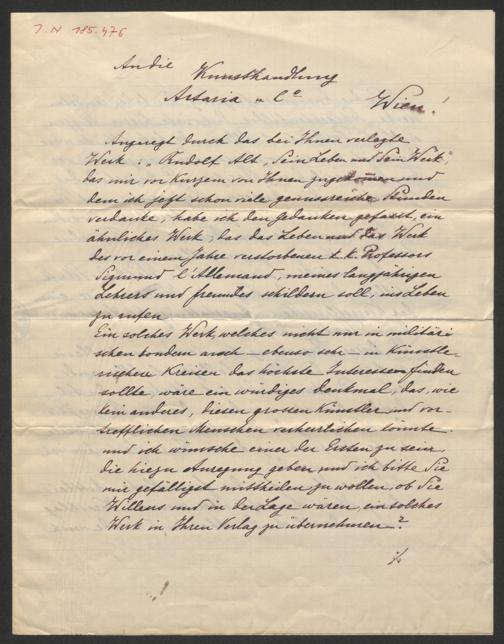 J.N. 185.476
An die
Kunsthandlung
Artaria u Co
Wien!
Angeregt durch das bei Ihnen verlegte
Werk: „Rudolf Alt, Sein Leben und Sein Werk",
das mir vor Kurzem von Ihnen zugekommen und
dem ich jetzt schon viele genussreiche Stunden
verdanke, habe ich den Gedanken gefasst, ein
ähnliches Werk, das das Leben und das Werk
des vor einem Jahre verstorbenen k. k. Professors
Sigmund L'Allemand, meines langjährigen
Lehrers und Freundes schildern soll, ins Leben
zu rufen
Ein solches Werk, welches nicht nur in militäri
schen sondern auch – ebenso sehr – in Künstle-
rischen Kreisen das höchste Interesse finden
sollte, wäre ein würdiges Denkmal, das, wie
kein anderes, diesen grossen Künstler und vor-
trefflichen Menschen verherrlichen könnte.
und ich wünsche einer der Ersten zu sein,
die hiezu Anregung geben und ich bitte Sie
mir gefälligst mittheilen zu wollen, ob Sie
Willens und in der Lage wären, ein solches
Werk in Ihren Verlag zu übernehmen?